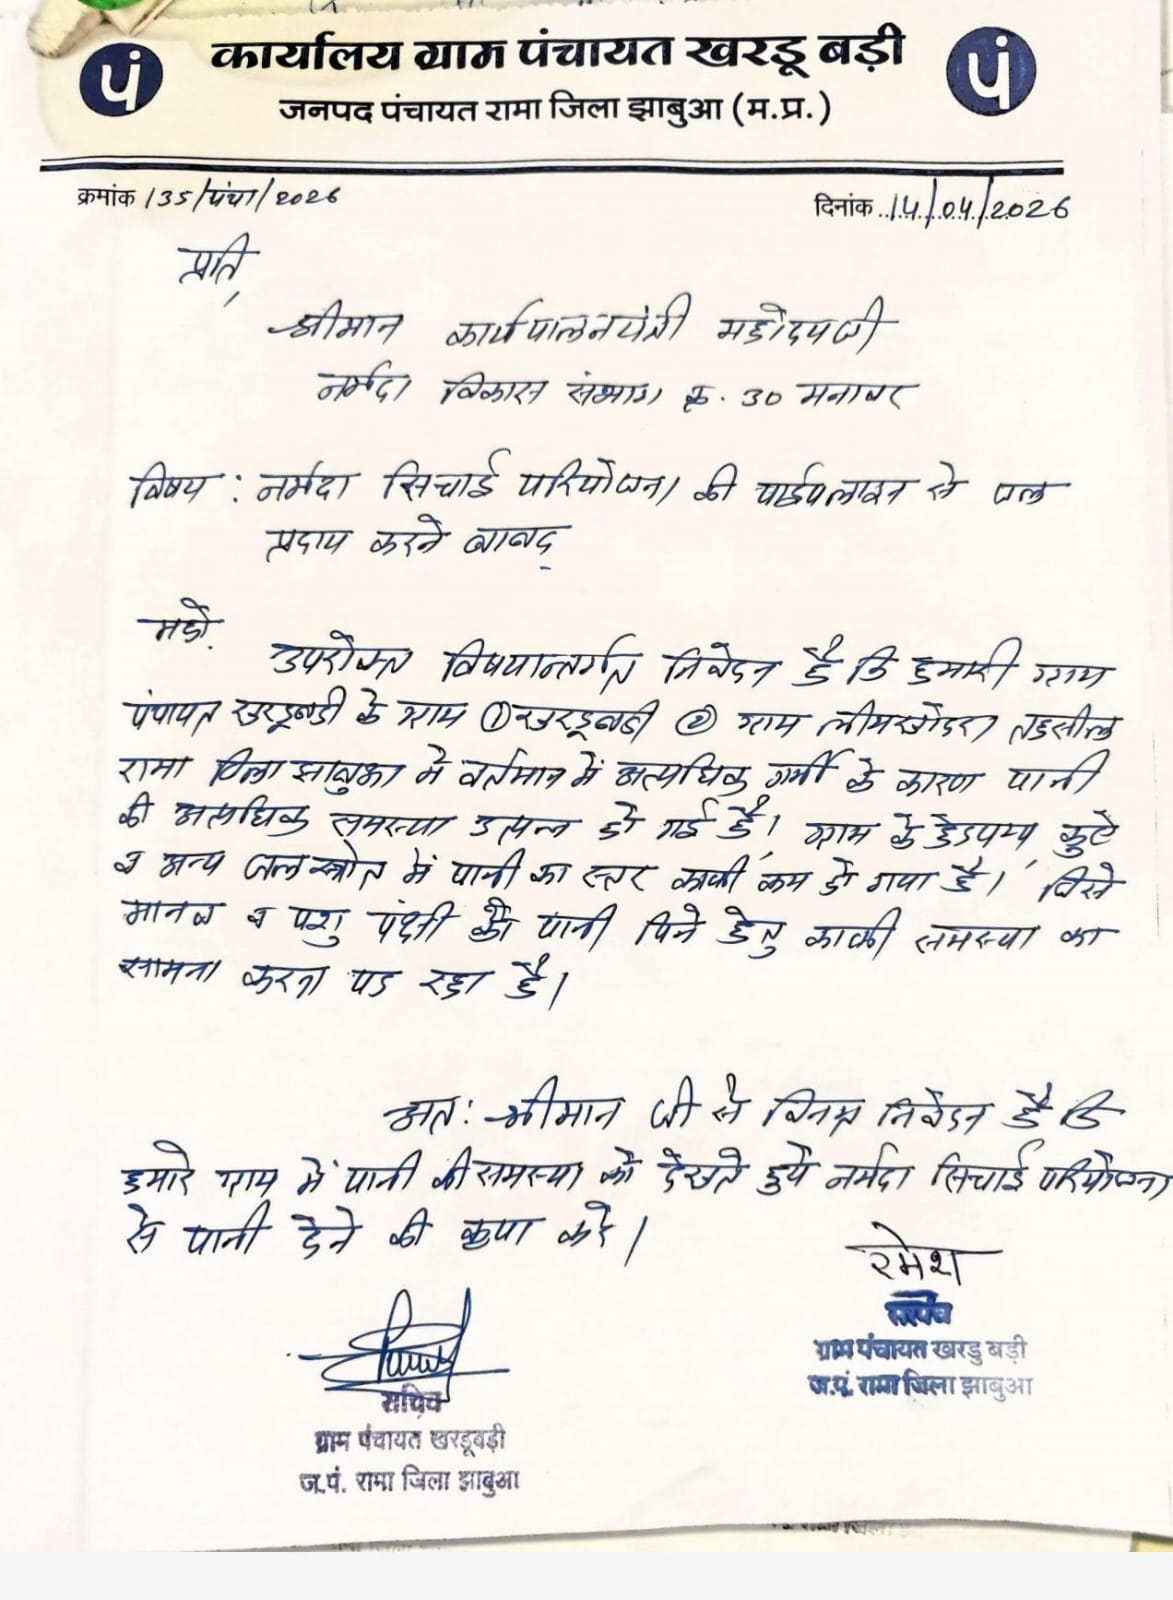 पं कार्यालय ग्राम पंचायत खरडू बड़ी पं
जनपद पंचायत रामा जिला झाबुआ (म.प्र.)
क्रमांक 135/पंचा/2026 दिनांक..14/04/2026
प्रति,
श्रीमान कार्यपालनयंत्री महोदय जी
नर्मदा विकास संभाग क्र. 30 मनावर
विषय : नर्मदा सिचाई परियोजना की पाईपलाइन से जल
प्रदाय करने बाबद्
महो.
उपरोक्त विषयान्तर्गत निवेदन है कि हमारी ग्राम
पंचायत खरडूबडी के ग्राम ① खरडूबडी ② ग्राम लीमखोदरा तहसील
रामा जिला झाबुआ मे वर्तमान में अत्यधिक गर्मी के कारण पानी
की अत्यधिक समस्या उत्पन्न हो गई है। ग्राम के हेडपम्प, कुटे
व अन्य जल स्त्रोत में पानी का स्तर काफी कम हो गया है। जिसे
मानव व पशु पंक्षी को पानी पिने हेतु काफी समस्या का
सामना करना पड रहा है।
अत: श्रीमान जी से विनम्र निवेदन है कि
हमारे ग्राम में पानी की समस्या को देखते हुये नर्मदा सिचाई परियोजना
से पानी देने की कृपा करे।
रमेश
सरपंच
ग्राम पंचायत खरडु बड़ी
ज.पं. रामा जिला झाबुआ
सचिव
ग्राम पंचायत खरडूबड़ी
ज.पं. रामा जिला झाबुआ